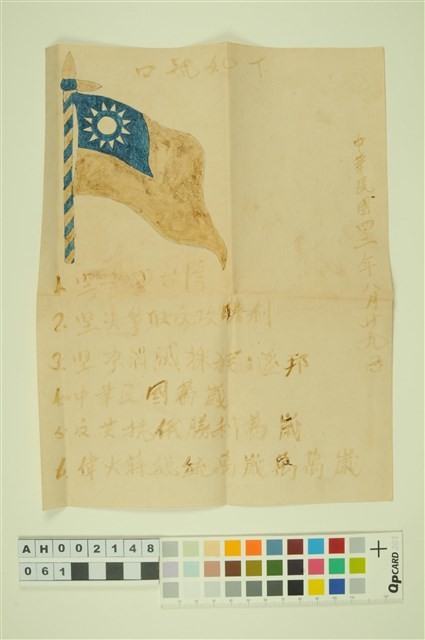 口號如下
中華民國 年八月廿九日
1. 坚
2. 坚決爭取反攻勝利
3. 坚決消滅 邦
4. 中華民國萬歲
5. 反共抗俄勝利萬歲
6. 偉大蔣總統萬歲萬萬歲
AH002148
061
QPCARD